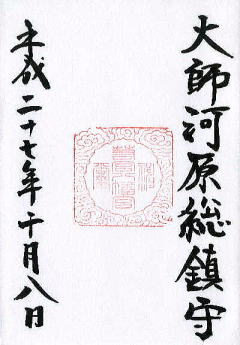 大師河原総鎮守
平成二十七年十月八日